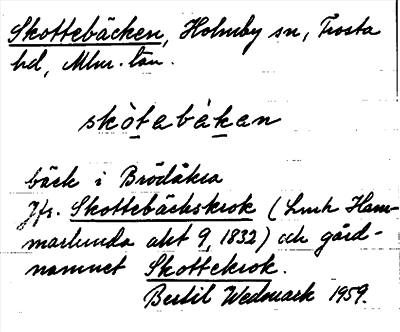 Skottebäcken, Holmby sn, Frosta
hd, Mlm. län.
skòtabàkan
bäck i Brödåkra
Jfr. Skottebäckskrok (Lmh Ham-
marlunda akt 9, 1832) och gård-
namnet Skottekrok.
Bertil Wedmark 1959.